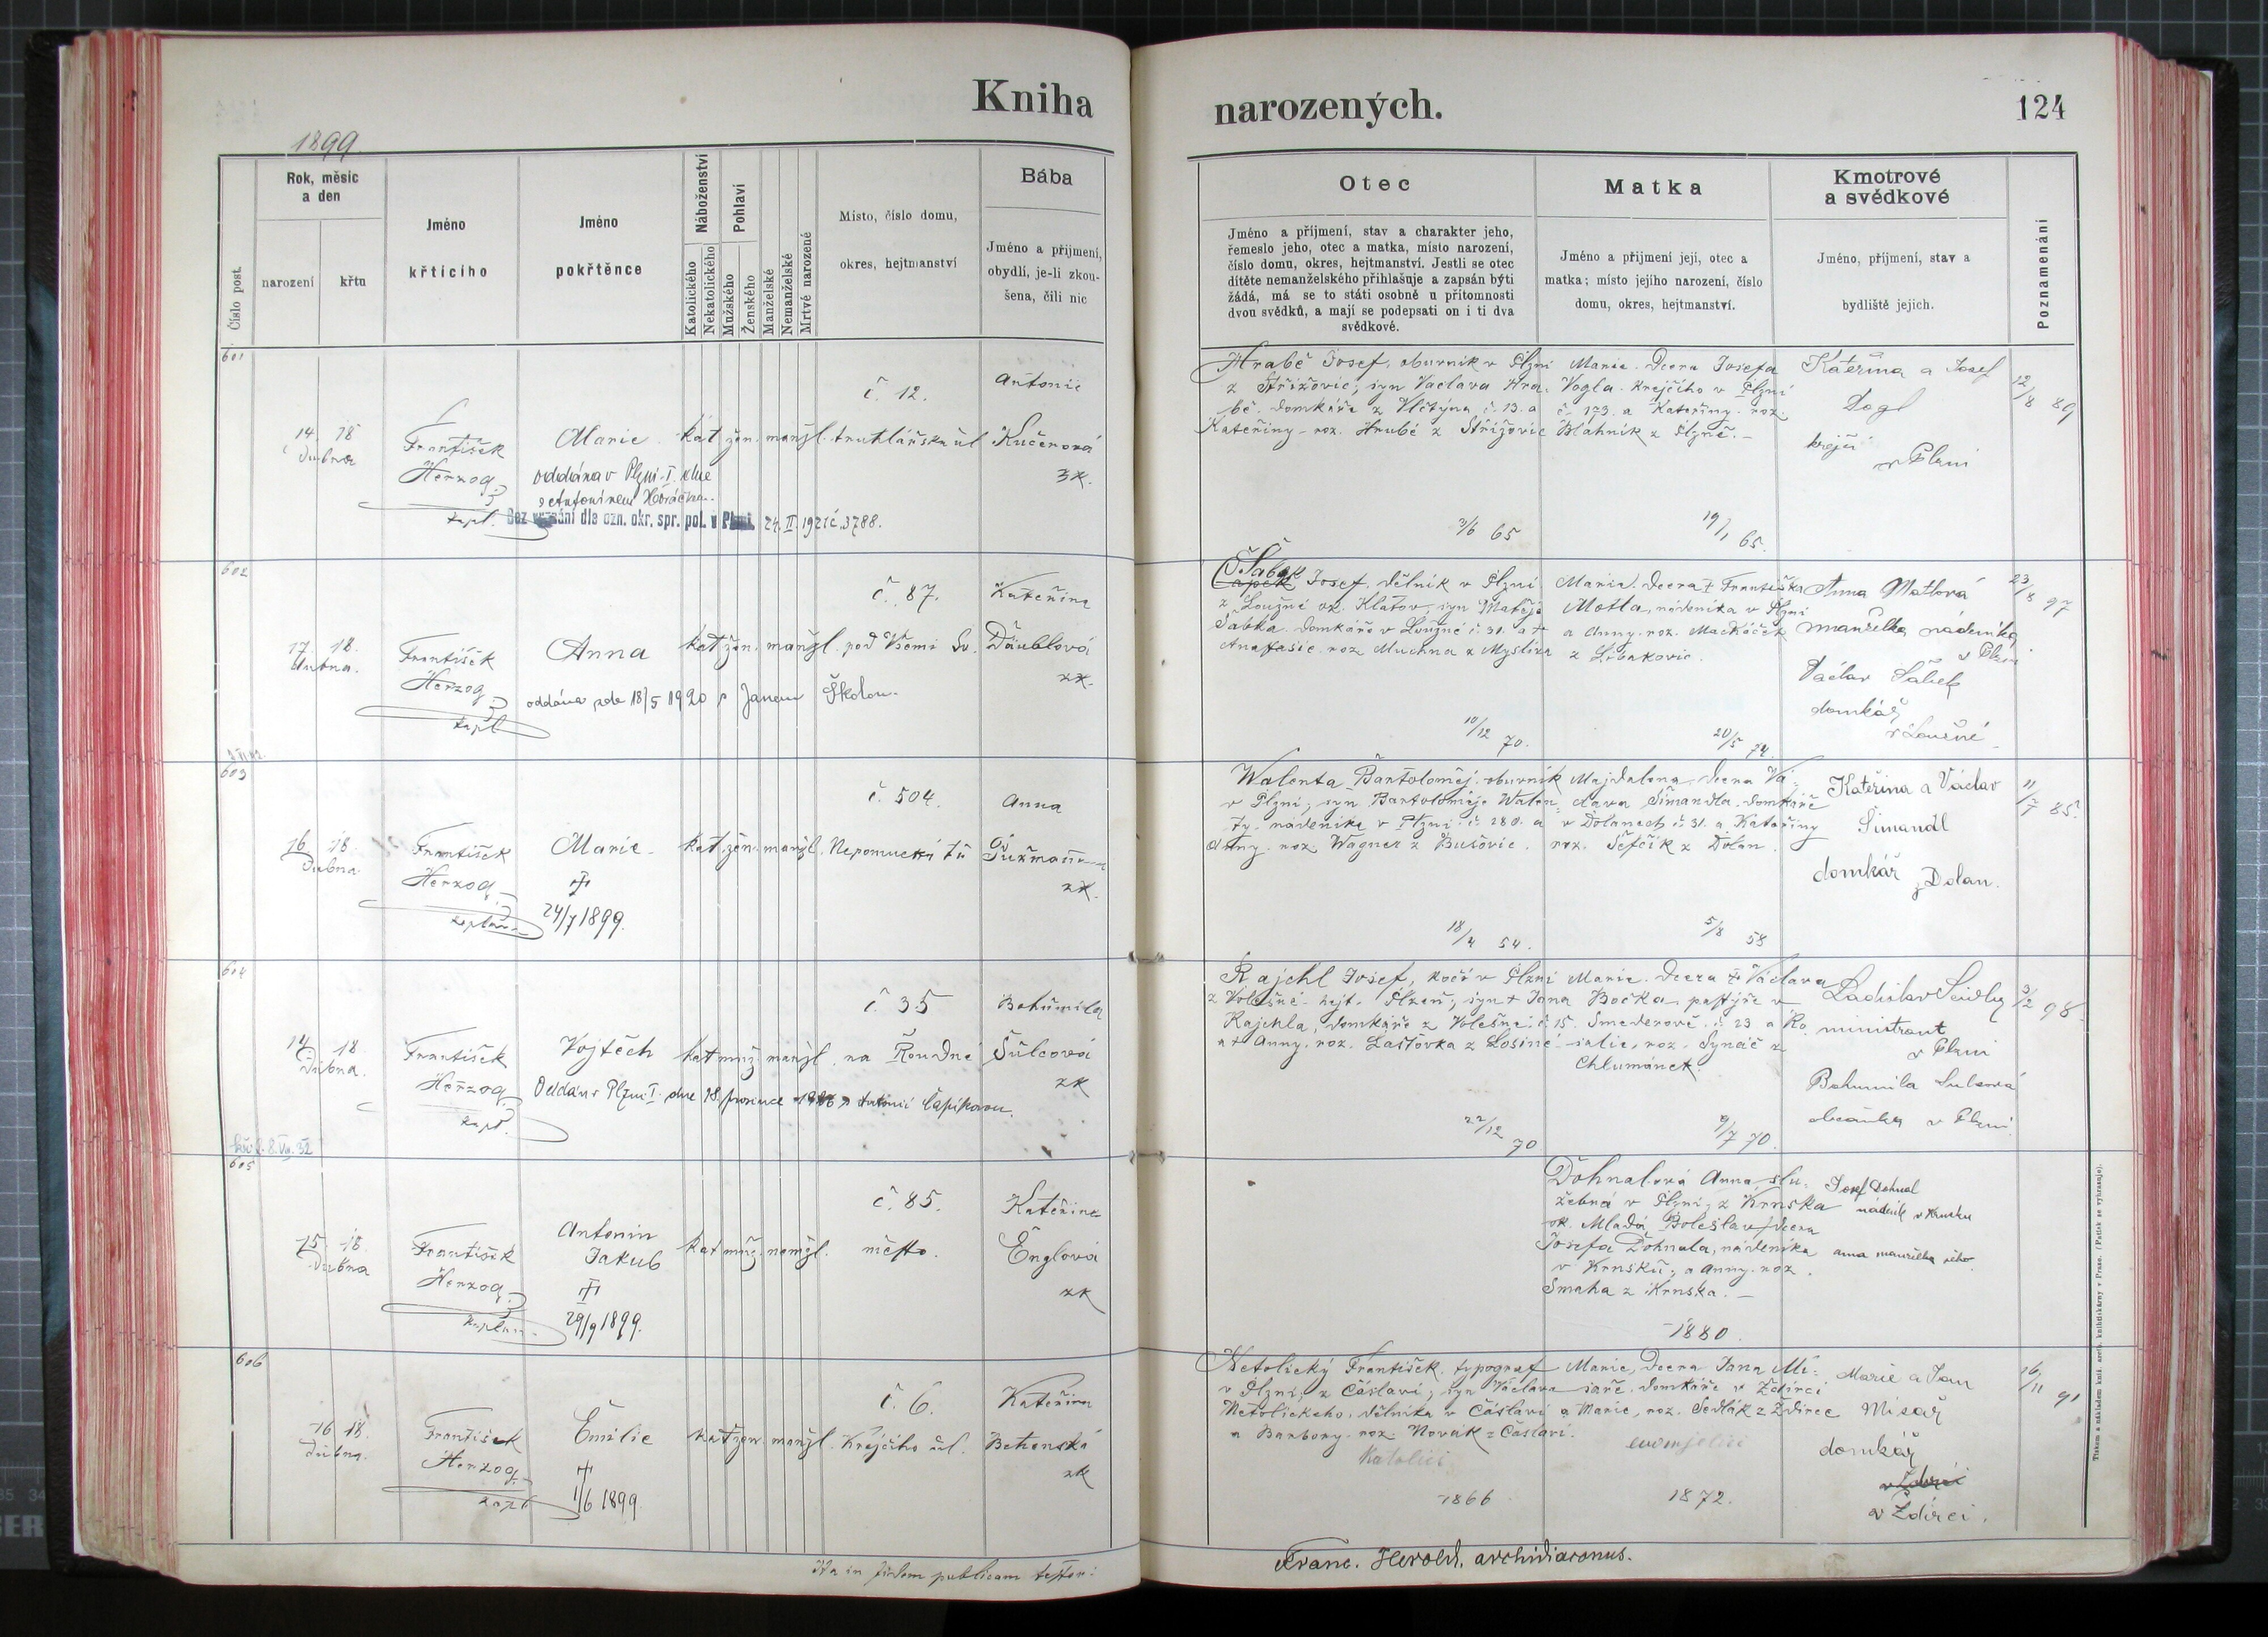 Kniha
narozených.
124
1899
Číslo post.
Rok, měsíc
a den
narození
křtu
Jméno
křtícího
Jméno
pokřtěnce
Náboženství
Katolického
Nekatolického
Pohlaví
Mužského
Ženského
Manželské
Nemanželské
Mrtvě narozené
Místo, číslo domu,
okres, hejtmanství
Bába
Jméno a příjmení,
obydlí, je-li zkou-
šena, čili nic
Otec
Jméno a příjmení, stav a charakter jeho,
řemeslo jeho, otec a matka, místo narození,
číslo domu, okres, hejtmanství. Jestli se otec
dítěte nemanželského přihlašuje a zapsán býti
žádá, má se to státi osobně u přítomnosti
dvou svědků, a mají se podepsati on i ti dva
svědkové.
Matka
Jméno a příjmení její, otec a
matka; místo jejího narození, číslo
domu, okres, hejtmanství.
Kmotrové
a svědkové
Jméno, příjmení, stav a
bydliště jejich.
Poznamenání
601
14. 18
dubna
František
Herzog
kapl.
Marie
kat. žen. manžl.
č. 12.
truhlářská ul
Antonie
Kučerová
zk.
oddána v Plzni-I. dne
s Antonínem
Bez vyznání dle ozn. okr. spr. pol. v Plzni 24. II 1921 č. 3788.
Hrabě Josef, oburník v Plzni
z Střížovic, syn Vaclava Hra-
bě. domkáře z Vlčtýna č. 13. a
Kateřiny. roz. Hrubé z Střížovic
3/6 65
Marie. dcera Josefa
Vogla. krejčího v Plzni
č. 173. a Kateřiny. roz.
Bláhník z Plzně.
19/1 65.
Kateřina a Josef
krejčí
v Plzni
12/8 89
602
17. 18.
dubna.
František
Herzog
kapl
Anna
kat. žen. manžl.
č. 87.
pod Všemi Sv.
Kateřina
Däublová
zk.
oddána zde 18/5 1920 s Janem Školou.
Šabek Josef, dělník v Plzni
z Loužné ok. Klatov, syn Matěje
Šabka. domkáře v Loužné č. 31. a †
Anastasie. roz Muchna z Myslíva
10/12 70.
Marie. dcera † Františka
Motla, nádeníka v Plzni
a Anny. roz. Mackáček
z Libákovic.
20/5 74
Anna Motlová
manželka nádeníka
v Plzni
Václav Šabek
domkář
v Loužné
23/8 97
603
16. 18.
dubna.
František
Herzog
kaplan
Marie
†
24/7 1899.
kat. žen. manžl.
č. 504.
Nepomucká tř
Anna
zk.
Walenta Bartoloměj. oburník
v Plzni, syn Bartoloměje Walen-
ty. nádeníka v Plzni č. 280. a
Anny. roz. Wagner z Bušovic.
18/4 54.
Majdalena. dcera Vá-
clava Šimandla. domkáře
v Dolanech č. 31. a Kateřiny
roz. Šefčík z Dolan.
5/8 58
Kateřina a Václav
Šimandl
domkář z Dolan.
11/7 85.
604
14. 18.
dubna.
František
Herzog
kapl.
Vojtěch
kat. muž. manžl.
č. 35
na Roudné
Bohumila
Šulcová
zk
Oddán v Plzni I. dne 28. prosince s Antonií Čapkovou.
Rajchl Josef, kočí v Plzni
z Volešné. hejt. Plzeň, syn † Jana
Rajchla, domkáře z Volešné č. 15.
a † Anny. roz. Laštovka z Losiné
22/12 70
Marie. dcera † Václava
Bočka. pastýře v
Smederově č. 23 a Ro-
salie, roz. Synáč z
Chlumánek
9/7 70.
Ladislav Seidl
ministrant
v Plzni
Bohumila Sulcová
v Plzni
3/2 98.
605
15. 18.
dubna
František
Herzog
kaplan
Antonin
Jakub
†
29/9 1899.
kat. muž. nemžl.
č. 85.
město.
Kateřina
Englová
zk
Dohnalová Anna, slu-
žebná v Plzni, z Krnska
ok. Mladá Boleslav, dcera
Josefa Dohnala, nádeníka
v Krnsku, a Anny. roz.
Smaha z Krnska.
1880.
Josef Dohnal
nádeník v Krnsku
Anna manželka jeho
606
16. 18.
dubna.
František
Herzog
kapl
Emilie
†
1/6 1899.
kat. žen. manžl.
č. 6.
Krejčího ul.
Kateřina
Betenská
zk
Netolický František. typograf
v Plzni, z Čáslavi, syn Václava
Netolického, dělníka v Čáslavi
a Barbory. roz Novák z Čáslavi.
Katolíci
1866
Marie, dcera Jana Mi-
saře. domkáře v Ždírci
a Marie, roz. Sedlák z Ždírce
evanjelíci
1872.
Marie a Jan
Misař
domkář
v Ždírci.
16/11 91
Ita in fidem publicam testor:
Franc. Herold, archidiaconus.